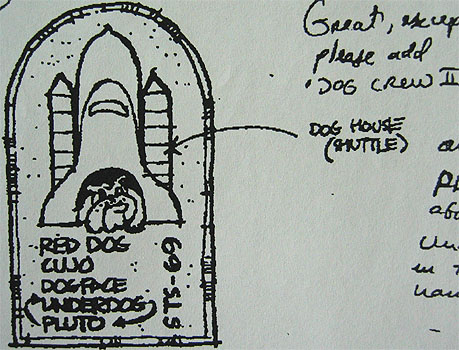 Great, excep
please add
"DOG CREW II
DOG HOUSE
(SHUTTLE)
RED DOG
CUJO
DOGFACE
UNDERDOG
PLUTO
STS-69
in